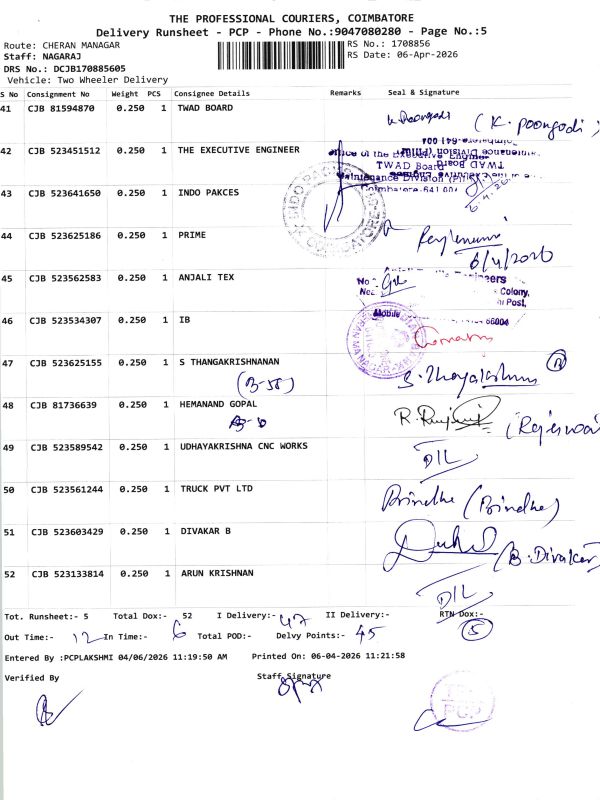 THE PROFESSIONAL COURIERS, COIMBATORE
Delivery Runsheet - PCP - Phone No.:9047080280 - Page No.:5
Route: CHERAN MANAGAR RS No.: 1708856
Staff: NAGARAJ RS Date: 06-Apr-2026
DRS No.: DCJB170885605
Vehicle: Two Wheeler Delivery
S No Consignment No Weight PCS Consignee Details Remarks Seal & Signature
41 CJB 81594870 0.250 1 TWAD BOARD K. Poongodi (K. Poongodi)
42 CJB 523451512 0.250 1 THE EXECUTIVE ENGINEER
office of the Executive Engineer
TWAD Board
Maintenance Division
Coimbatore-641 001
43 CJB 523641650 0.250 1 INDO PAKCES
44 CJB 523625186 0.250 1 PRIME
6/4/2026
45 CJB 523562583 0.250 1 ANJALI TEX
Colony,
Post,
Mobile
46 CJB 523534307 0.250 1 IB
47 CJB 523625155 0.250 1 S THANGAKRISHNANAN
(B-58)
48 CJB 81736639 0.250 1 HEMANAND GOPAL
49 CJB 523589542 0.250 1 UDHAYAKRISHNA CNC WORKS D/L
50 CJB 523561244 0.250 1 TRUCK PVT LTD Brindha (Brindha)
51 CJB 523603429 0.250 1 DIVAKAR B (B. Divakar)
52 CJB 523133814 0.250 1 ARUN KRISHNAN D/L
Tot. Runsheet:- 5 Total Dox:- 52 I Delivery:- 47 II Delivery:- RTN Dox:- 5
Out Time:- 12 In Time:- 6 Total POD:- Delvy Points:- 45
Entered By :PCPLAKSHMI 04/06/2026 11:19:50 AM Printed On: 06-04-2026 11:21:58
Verified By Staff Signature
PCP